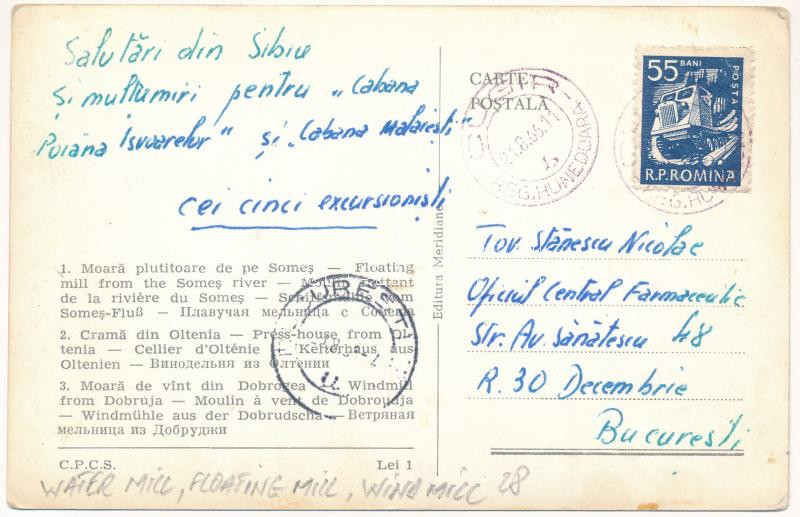 Salutări din Sibiu
Și mulțumiri pentru „Cabana
Poiana Isvoarelor" și „Cabana Malaiești"
cei cinci excursioniști
1. Moară plutitoare de pe Someș — Floating
mill from the Someș river — flottant
de la rivière du Someș — vom
Someș-Fluß — Плавучая мельница с Сомеша
2. Cramă din Oltenia — Press-house from Ol-
tenia — Cellier d'Olténie — Kelterhaus aus
Oltenien — Винодельня из Олтении
3. Moară de vînt din Dobrogea — Windmill
from Dobruja — Moulin à vent de Dobroudja
— Windmühle aus der Dobrudscha — Ветряная
мельница из Добруджи
C.P.C.S. Lei 1
WATER MILL, FLOATING MILL, WIND MILL 28
Editura Meridiane
CARTE
POȘTALĂ
21.8.66.11
REG. HUNEDOARA
55 BANI
POSTA
R.P.ROMINA
Tov. Stănescu Nicolae
Oficiul Central Farmaceutic
Str. Av. Sănătescu 48
R. 30 Decembrie
București